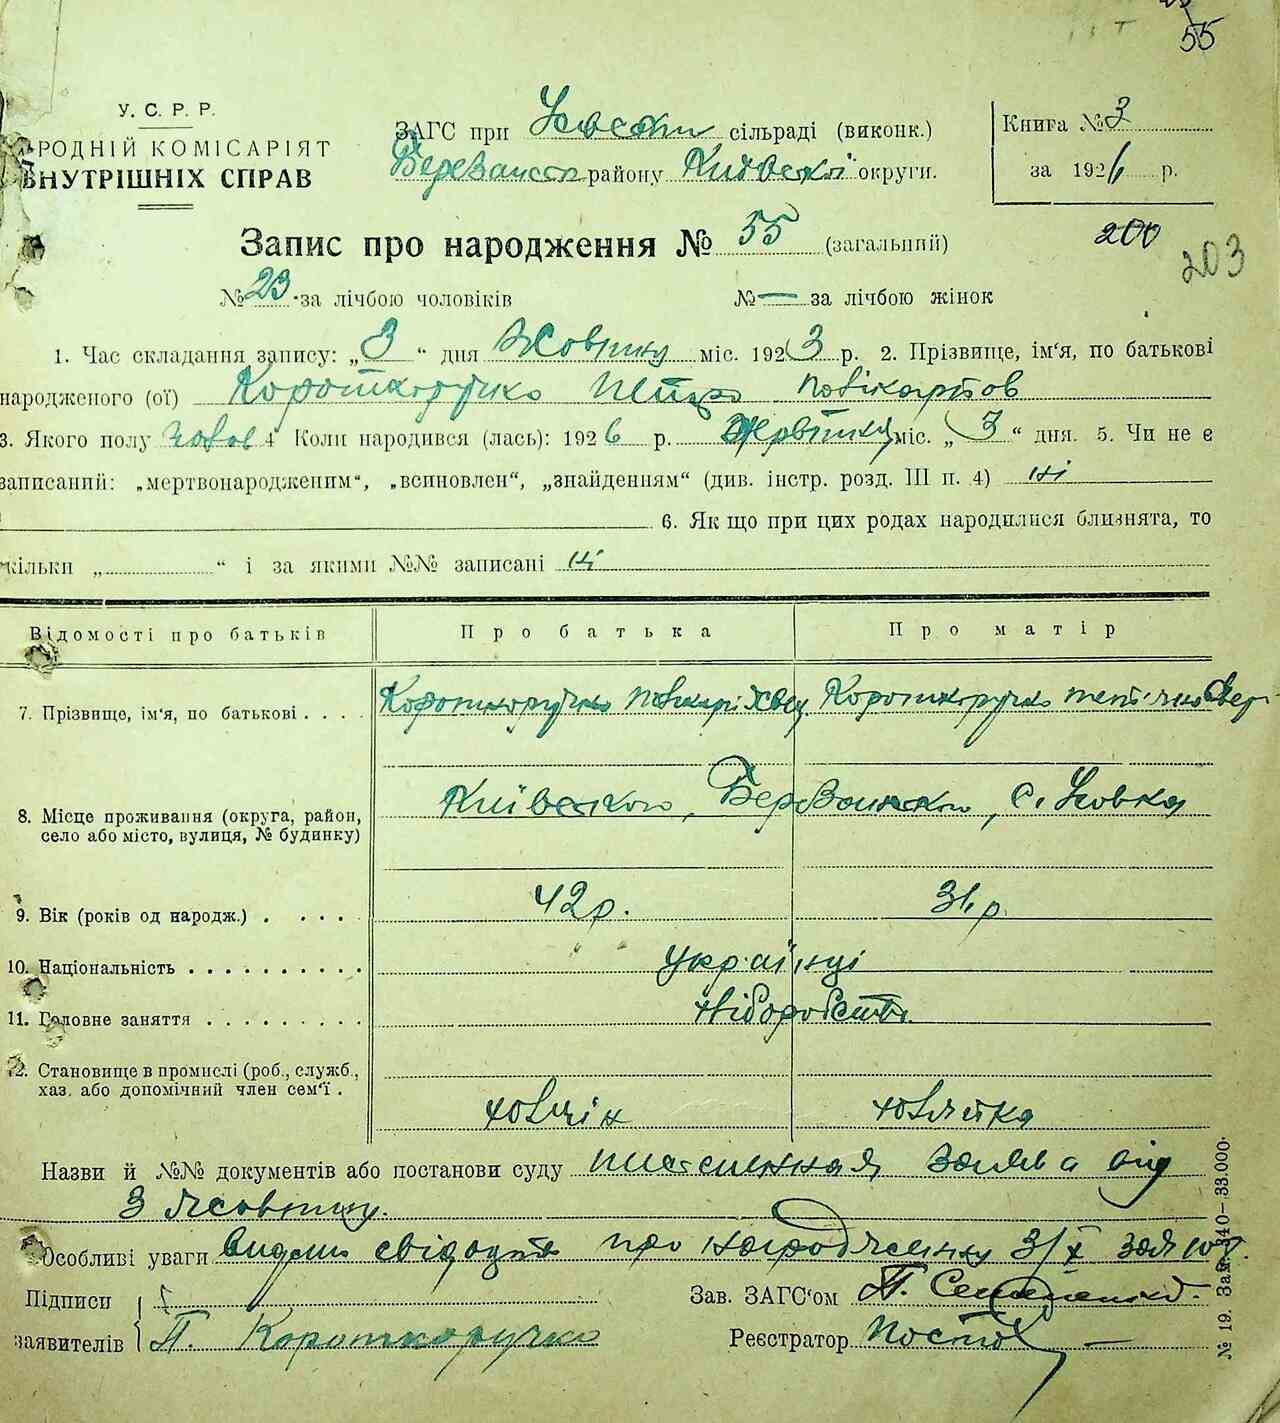 55
У. С. Р. Р.
РОДНІЙ КОМІСАРІЯТ
ВНУТРІШНІХ СПРАВ
ЗАГС при сільраді (виконк.)
району округи.
Книга № 3
за 1926 р.
Запис про народження № 55 (загальний)
200
203
№ 23 за лічбою чоловіків № — за лічбою жінок
1. Час складання запису: „3“ дня Жовтня міс. 1923 р. 2. Прізвище, ім'я, по батькові
народженого (ої) Короткоручко Петро
3. Якого полу чолов 4 Коли народився (лась): 1926 р. міс. „3“ дня. 5. Чи не є
записаний: „мертвонародженим“, „всиновлен“, „знайденням“ (див. інстр. розд. III п. 4) ні
6. Як що при цих родах народилися близнята, то
кільки „ “ і за якими №№ записані ні
Відомості про батьків Про батька Про матір
7. Прізвище, ім'я, по батькові . . . . Короткоручко Короткоручко
8. Місце проживання (округа, район,
село або місто, вулиця, № будинку)
9. Вік (років од народж.) . . . . 42 р. 31 р.
10. Національність . . . . . . . . . . українці
11. Головне заняття . . . . . . . . . хліборобств.
12. Становище в промислі (роб., служб.,
хаз. або допомічний член сем'ї .
Назви й №№ документів або постанови суду заява від
3 жовтня.
Особливі уваги видано свідоцтв про народження 3/X
Підписи
заявителів П. Короткоручко
Зав. ЗАГС'ом П.
Реєстратор
№ 19. Зам. 340—33.000.